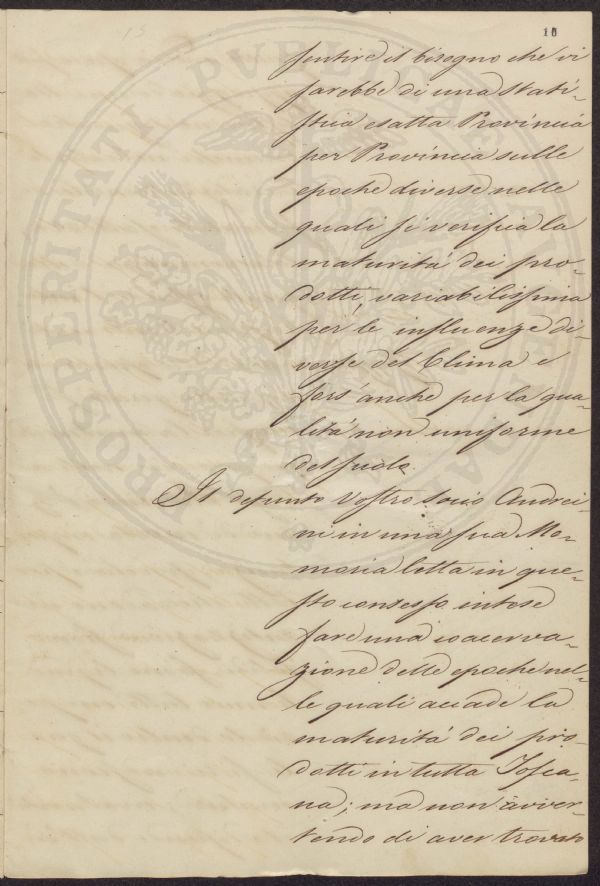 10
sentire il bisogno che vi
sarebbe di una stati-
stica esatta Provincia
per Provincia sulle
epoche diverse nelle
quali si verifica la
maturità dei pro-
dotti, variabilissima
per le influenze di-
verse del Clima e
fors'anche per la qua-
lità non uniforme
del suolo.
Il defunto Vostro socio Andrei-
ni in una sua Me-
moria letta in que-
sto consesso intese
fare una coacerva-
zione delle epoche nel-
le quali accade la
maturità dei pro-
dotti in tutta Tosca-
na; ma non avver-
tendo di aver trovato
PROSPERITATI PVBLICAE